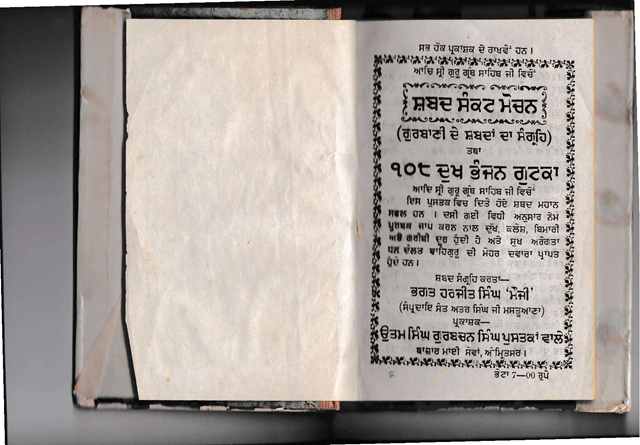 ਸਭ ਹੱਕ ਪ੍ਰਕਾਸ਼ਕ ਦੇ ਰਾਖਵੇਂ ਹਨ।
ਆਦਿ ਸ੍ਰੀ ਗੁਰੂ ਗ੍ਰੰਥ ਸਾਹਿਬ ਜੀ ਵਿਚੋਂ
ਸ਼ਬਦ ਸੰਕਟ ਮੋਚਨ
(ਗੁਰਬਾਣੀ ਦੇ ਸ਼ਬਦਾਂ ਦਾ ਸੰਗ੍ਰਹਿ)
ਤਥਾ
੧੦੮ ਦੁਖ ਭੰਜਨ ਗੁਟਕਾ
ਆਦਿ ਸ੍ਰੀ ਗੁਰੂ ਗ੍ਰੰਥ ਸਾਹਿਬ ਜੀ ਵਿਚੋਂ
ਇਸ ਪੁਸਤਕ ਵਿਚ ਦਿਤੇ ਹੋਏ ਸ਼ਬਦ ਮਹਾਨ
ਸਫਲ ਹਨ । ਦਸੀ ਗਈ ਵਿਧੀ ਅਨੁਸਾਰ ਨੇਮ
ਪੂਰਬਕ ਜਾਪ ਕਰਨ ਨਾਲ ਦੁੱਖ, ਕਲੇਸ਼, ਬਿਮਾਰੀ
ਅਤੇ ਗਰੀਬੀ ਦੂਰ ਹੁੰਦੀ ਹੈ ਅਤੇ ਸੁਖ ਅਰੋਗਤਾ
ਧਨ ਦੌਲਤ ਵਾਹਿਗੁਰੂ ਦੀ ਮੇਹਰ ਦਵਾਰਾ ਪ੍ਰਾਪਤ
ਹੁੰਦੇ ਹਨ।
ਸ਼ਬਦ ਸੰਗ੍ਰਹਿ ਕਰਤਾ—
ਭਗਤ ਹਰਜੀਤ ਸਿੰਘ 'ਮੌਜੀ'
(ਸੰਪ੍ਰਦਾਇ ਸੰਤ ਅਤਰ ਸਿੰਘ ਜੀ ਮਸਤੂਆਣਾ)
ਪ੍ਰਕਾਸ਼ਕ—
ਉਤਮ ਸਿੰਘ ਗੁਰਬਚਨ ਸਿੰਘ ਪੁਸਤਕਾਂ ਵਾਲੇ
ਬਾਜ਼ਾਰ ਮਾਈ ਸੇਵਾਂ, ਅੰਮ੍ਰਿਤਸਰ।
ਭੇਟਾ 7—00 ਰੁਪੈ